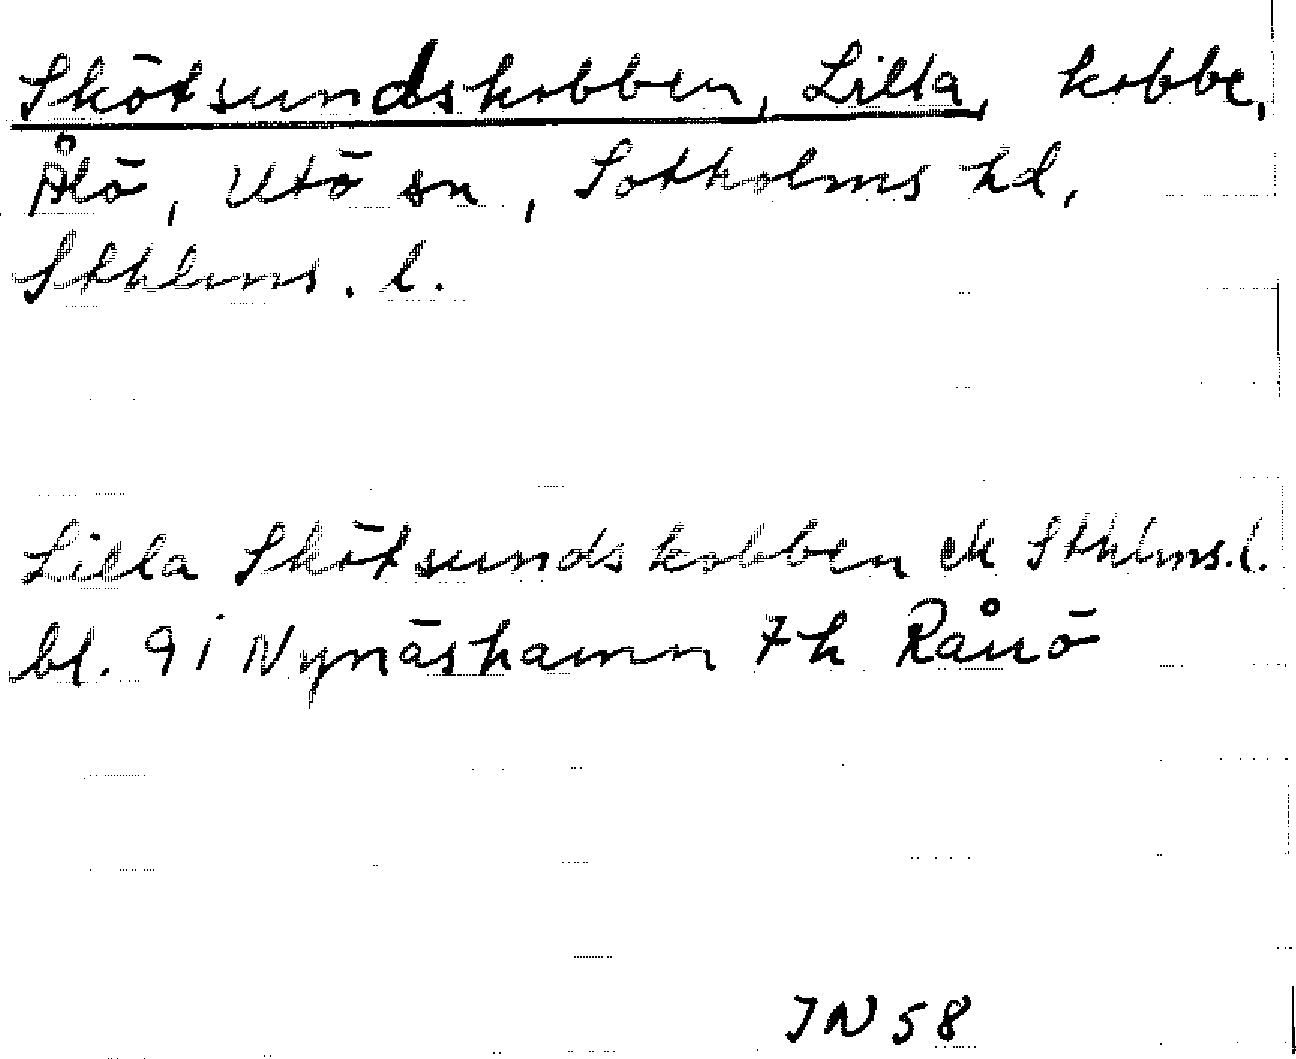 Skötsundskobben, Lilla, kobbe,
Ålö, Utö sn, Sotholms hd,
Sthlms. l.
Lilla Skötsundskobben ek Sthlms. l.
bl. 91 Nynäshamn 7h Rånö
IN 58